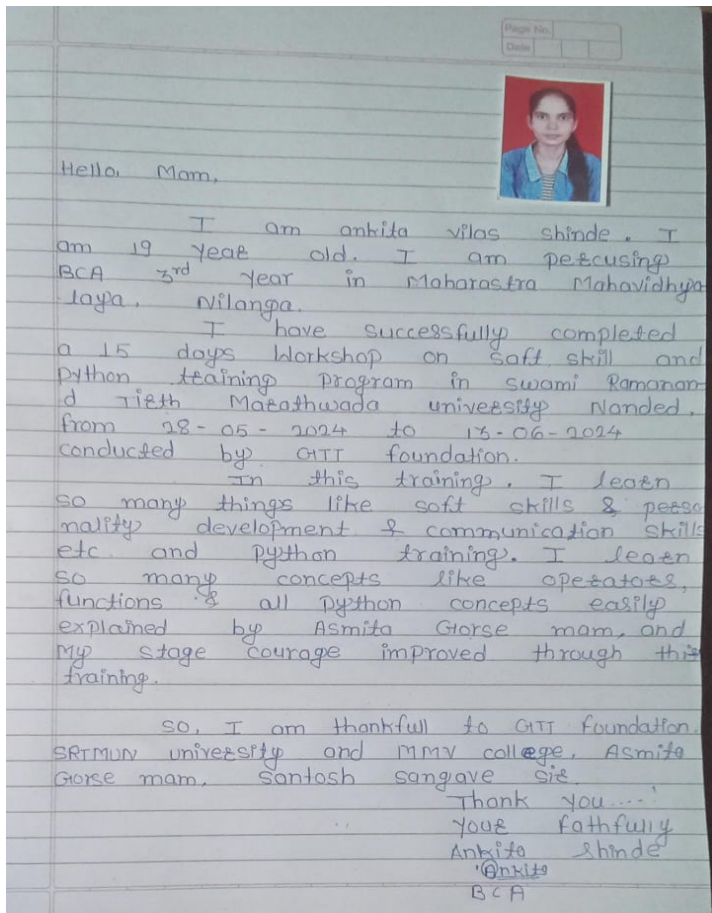 Page No.
Date
Hello, Mam,
I am ankita vilas shinde. I
am 19 year old. I am percusing
BCA 3rd year in Maharastra Mahavidhya
laya, Nilanga.
I have successfully completed
a 15 days Workshop on soft skill and
python training program in swami Ramanan
d Tirth Marathwada university Nanded.
from 28-05-2024 to 13-06-2024
conducted by GTT foundation.
In this training. I learn
so many things like soft skills & perso
nality development & communication skills
etc and python training. I learn
so many concepts like operators,
functions & all python concepts easily
explained by Asmita Gorse mam, and
My stage courage improved through this
training.
So, I am thankfull to GTT foundation.
SRTMUN university and MMV college. Asmita
Gorse mam. Santosh sangave sir.
Thank you....'
your fathfully
Ankita Shinde
Ankita
BCA